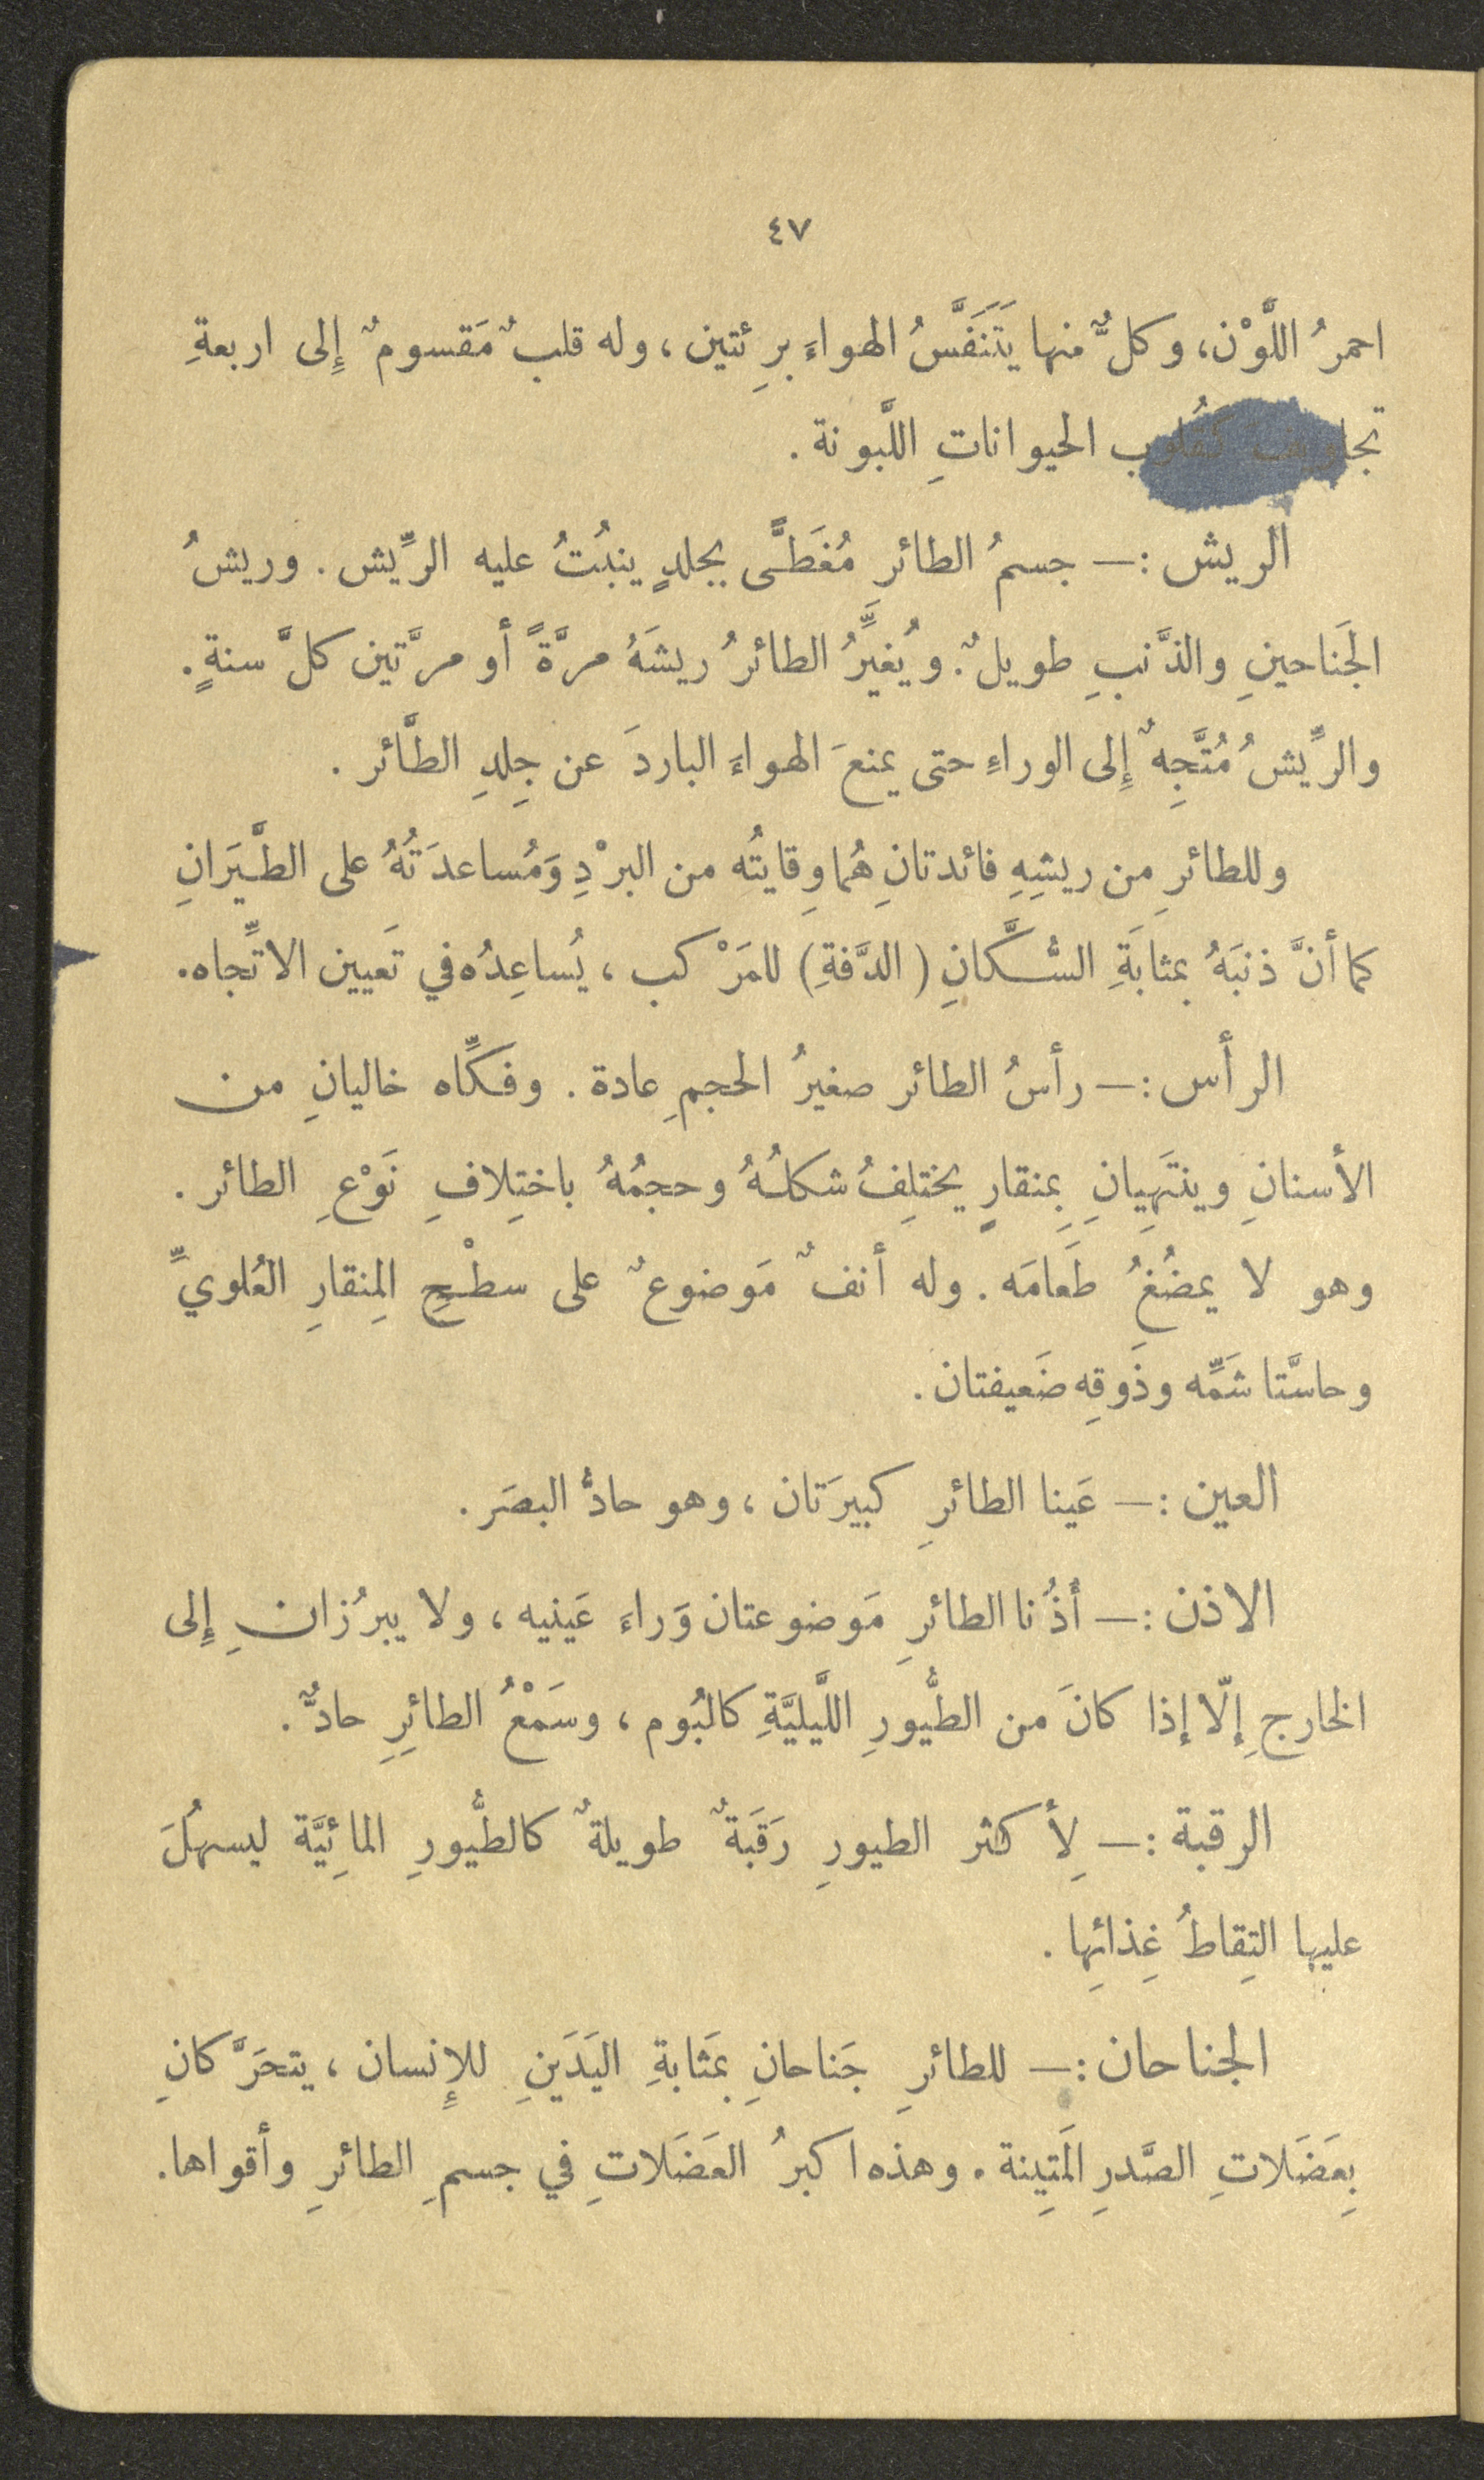 ٤٧
احمرُ اللَّوْن، وكلٌّ منها يَتَنَفَّسُ الهواءَ برِئتين، وله قلبٌ مَقسومٌ إِلى اربعةِ
تجاويف كقُلوب الحيواناتِ اللَّبونة.
الريش :— جسمُ الطائرِ مُغَطًّى بجلدٍ ينبُتُ عليه الرِّيش. وريشُ
الجَناحينِ والذَّنبِ طويلٌ. ويُغيِّرُ الطائرُ ريشَهُ مرَّةً أو مرَّتين كلَّ سنةٍ.
والرِّيشُ مُتَّجِهٌ إِلى الوراءِ حتى يمنعَ الهواءَ الباردَ عن جِلدِ الطَّائر.
وللطائرِ من ريشِهِ فائدتانِ هُما وِقايتُه من البرْدِ وَمُساعدَتُهُ على الطَّيَرانِ
كما أنَّ ذنبَهُ بمثابَةِ السُّكَّانِ (الدَّفةِ) للمَرْكب، يُساعِدُه في تَعيين الاتِّجاه.
الرأس :— رأسُ الطائر صغيرُ الحجمِ عادة. وفكَّاه خاليانِ من
الأسنانِ وينتَهِيانِ بِمنقارٍ يختلِفُ شكلُهُ وحجمُهُ باختِلافِ نَوْعِ الطائر.
وهو لا يمضُغُ طَعامَه. وله أنفٌ مَوضوعٌ على سطْحِ المِنقارِ العُلويِّ
وحاسَّتا شَمِّه وذَوقِه ضَعيفتان.
العين :— عَينا الطائرِ كبيرَتان، وهو حادُّ البصَر.
الاذن :— أُذُنا الطائرِ مَوضوعتان وَراءَ عَينيه، ولا يبرُزانِ إِلى
الخارجِ إلّا إذا كانَ من الطُّيورِ اللَّيليَّةِ كالبُوم، وسَمْعُ الطائِرِ حادٌّ.
الرقبة :— لِأكثر الطيورِ رَقَبَةٌ طويلةٌ كالطُّيورِ المائِيَّة ليسهُلَ
عليها التِقاطُ غِذائِها.
الجناحان :— للطائرِ جَناحانِ بمَثابةِ اليَدَينِ للإِنسان، يتحَرَّكانِ
بِعَضَلاتِ الصَّدرِ المَتِينة. وهذه اكبرُ العَضَلاتِ في جسمِ الطائرِ وأقواها.